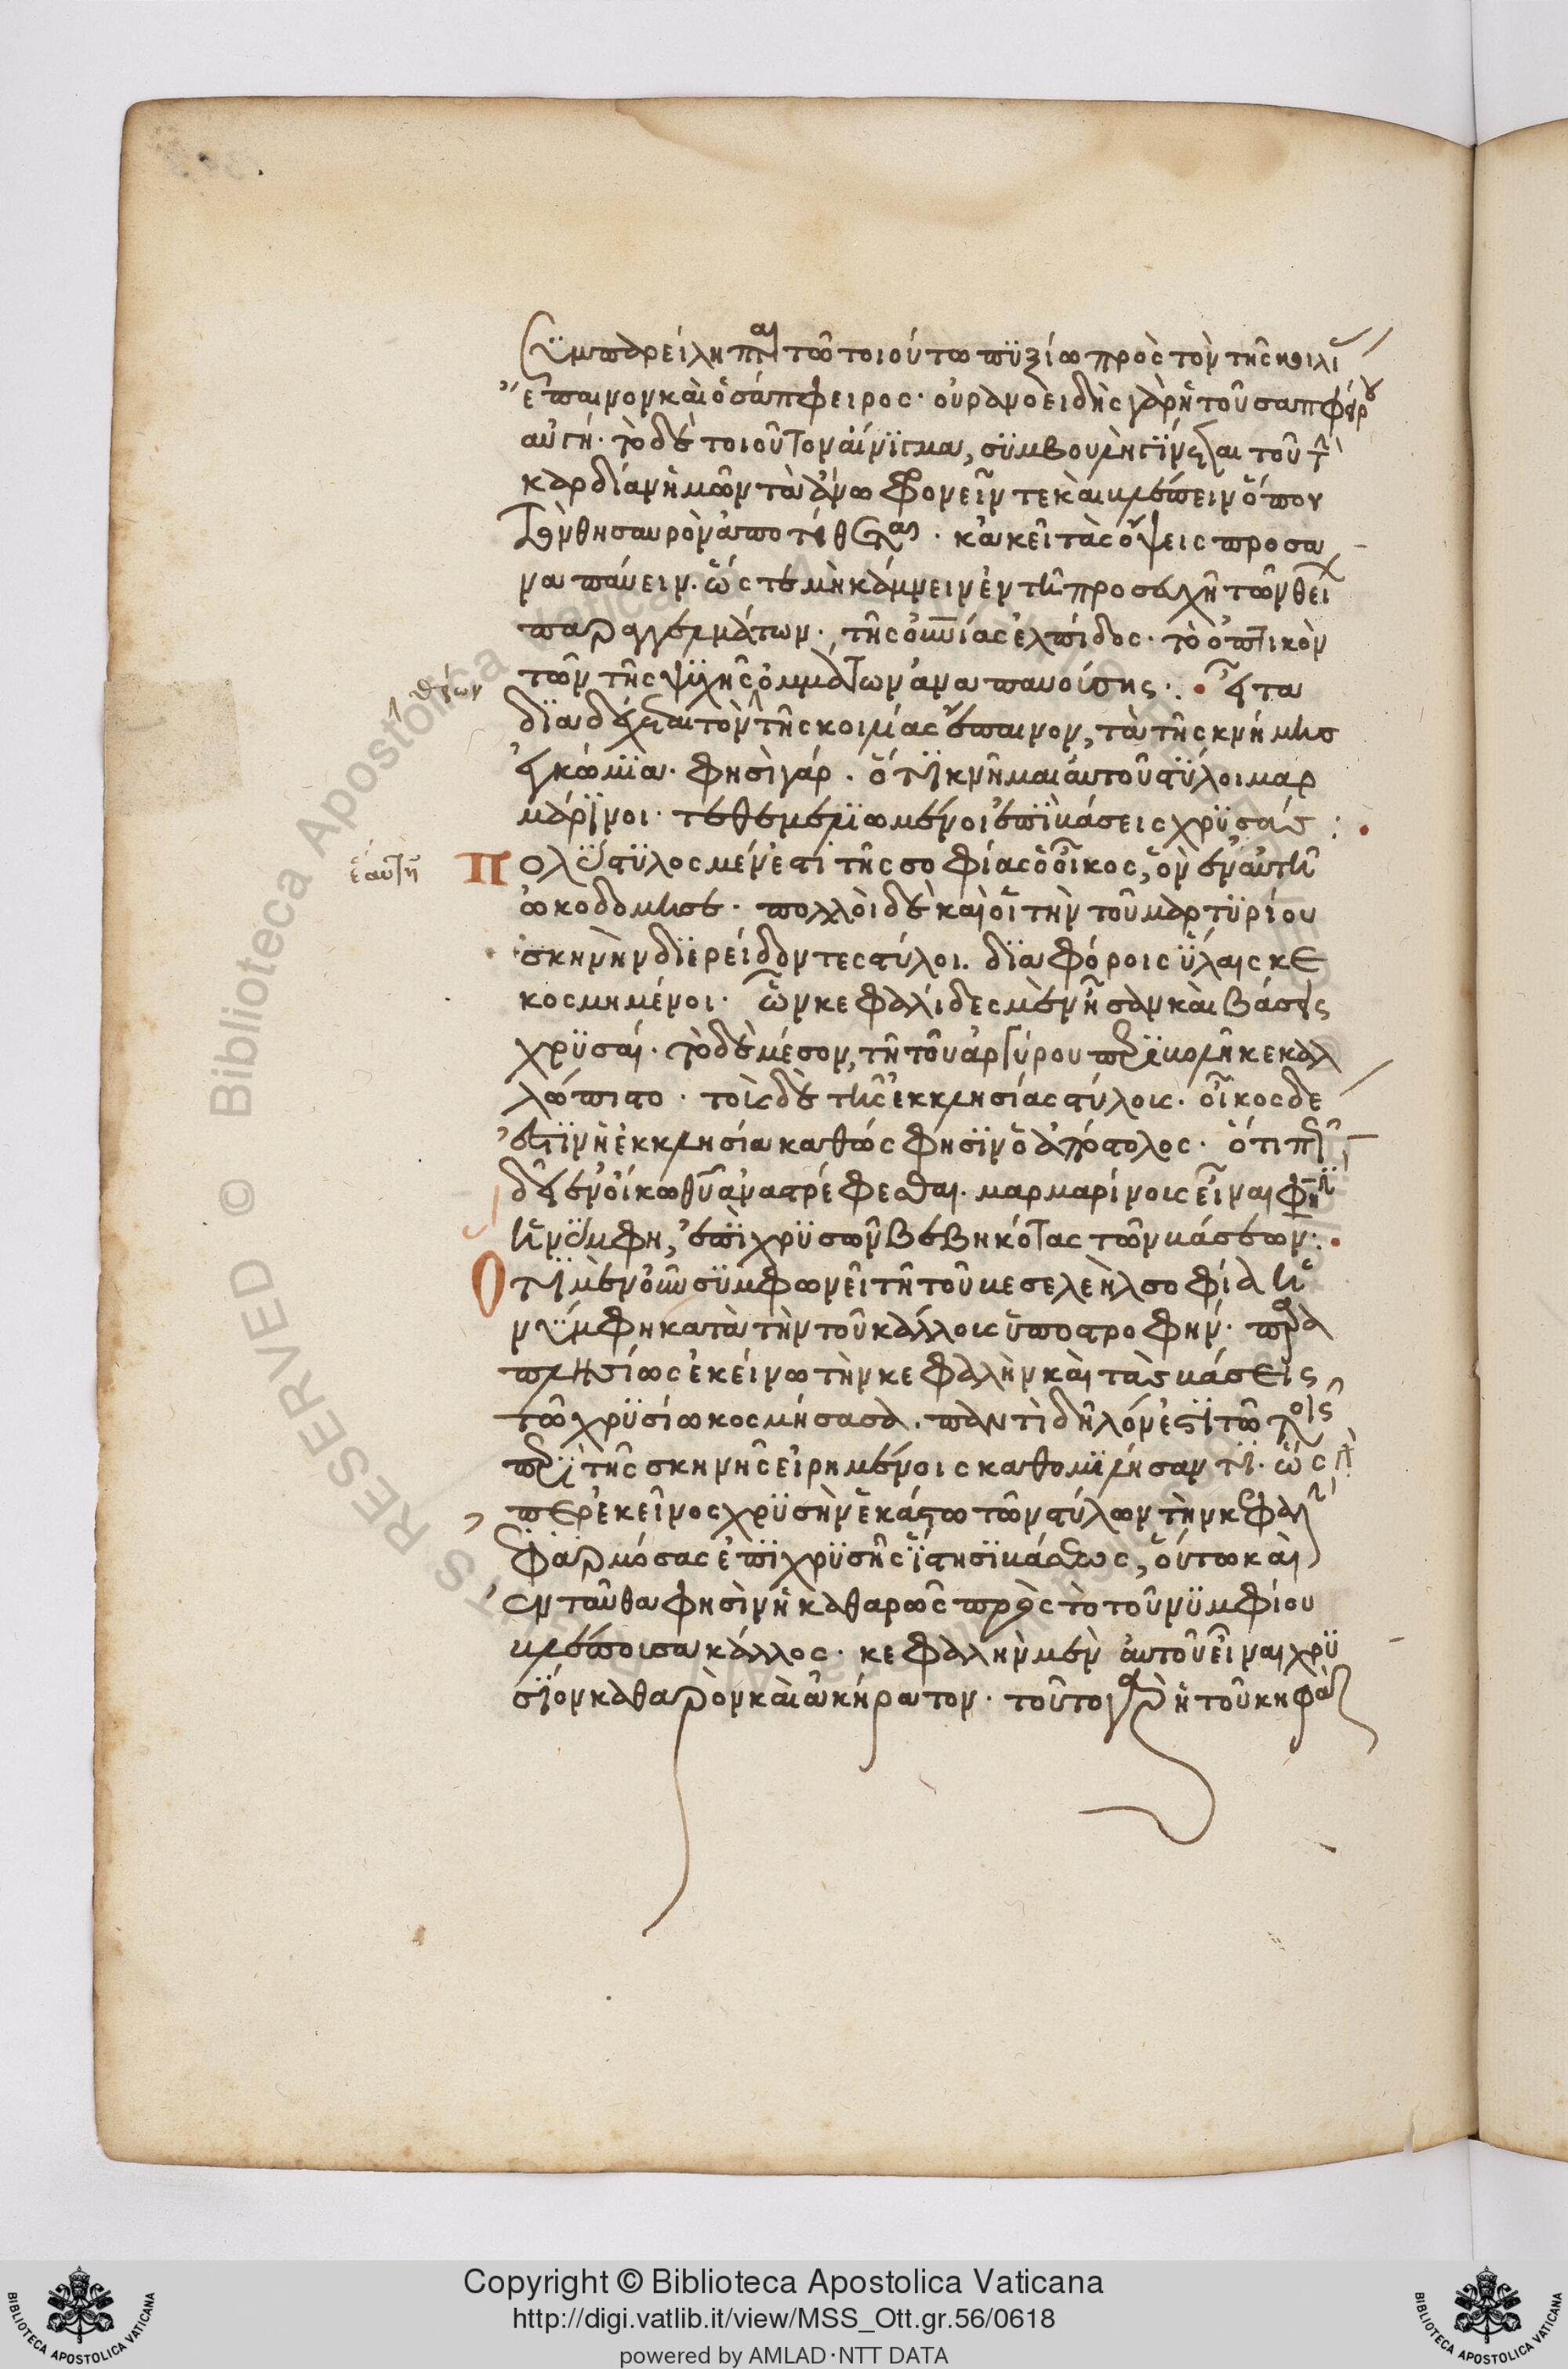 συμπαρείληπται τῶ τοιούτω πυξίω πρὸς τὸν τῆς κοιλί
ἔπαινον καὶ ὁ σάπφειρος· οὐρανοειδὴς γὰρ ἡ τοῦ σαπφείρου
αὐγή· τὸ δὲ τοιοῦτον αἴνιγμα, συμβουλὴ γίνεται τοῦ τὴν
καρδίαν ἡμῶν τὰ ἄνω φρονεῖν τε καὶ βλέπειν ὅπου
τὸν θησαυρὸν ἀποτίθεται· κἀκεῖ τὰς ὄψεις προσα
ναπαύειν· ὥστε μὴ κάμνειν ἐν τῆ προσοχῆ τῶν θεί
παραγγελμάτων, τῆς οὐνίας ἐλπίδος· τὸ ὀπτικὸν
τῶν τῆς ψυχῆς ὀμμάτων ἀναπαυούσης· εἶτα
διαδέχεται τὸν τῆς κοιλίας ἔπαινον, τὰ τῆς κνήμης
θείων
ἐγκώμια· φησὶ γάρ· ὅτι κνῆμαι αὐτοῦ στύλοι μαρ
μάρινοι· τεθεμελιωμένοι ἐπὶ βάσεις χρυσάς:
Πολύστυλος μέν ἐστι τῆς σοφίας ὁ οἶκος, ὃν ἐν αὐτῆ
ἑαυτῆ
ὠκοδόμησε· πολλοὶ δὲ καὶ οἱ τὴν τοῦ μαρτυρίου
σκηνὴν διερείδοντες στύλοι· διαφόροις ὕλαις κε
κοσμημένοι· ὧν κεφαλίδες μὲν ἦσαν καὶ βάσεις
χρυσαῖ· τὸ δὲ μέσον, τῆ τοῦ ἀργύρου περιβολῆ κεκαλ
λώπιστο· τοῖς δὲ τῆς ἐκκλησίας στύλοις· οἶκος δέ
ἐστιν ἡ ἐκκλησία καθώς φησιν ὁ ἀπόστολος· ὅτι πῶς
δεῖ ἐν οἴκω θεοῦ ἀναστρέφεσθαι· μαρμαρίνοις εἶναι φησὶν
ἡ νύμφη, ἐπὶ χρυσῶν βεβηκότας τῶν βάσεων:
Ὅτι μὲν οὖν συμφωνεῖ τῆ τοῦ βεσελεὴλ σοφία ἡ
νύμφη κατὰ τὴν τοῦ κάλλους ὑποστροφήν· παρα
πλησίως ἐκείνω τὴν κεφαλὴν καὶ τὰς βάσεις
τῶ χρυσίω κοσμήσασα· παντὶ δῆλόν ἐστι τῶ τοῖς
περὶ τῆς σκηνῆς εἰρημένοις καθομιλήσαντι· ὥσ
περ ἐκεῖνος χρυσῆν ἑκάστω τῶν στύλων τὴν κεφαλὴν
ἐφαρμόσας ἐπὶ χρυσῆς ἵστησι βάσεως, οὕτω καὶ
ἐνταῦθά φησιν ἡ καθαρῶς πρὸς τὸ τοῦ νυμφίου
βλέπουσα κάλλος· κεφαλὴν μὲν αὐτοῦ εἶναι χρυ
σίον καθαρὸν καὶ ἀκήρατον· τοῦτο γὰρ ἡ τοῦ κηφὰζ
Copyright © Biblioteca Apostolica Vaticana
http://digi.vatlib.it/view/MSS_Ott.gr.56/0618
powered by AMLAD·NTT DATA